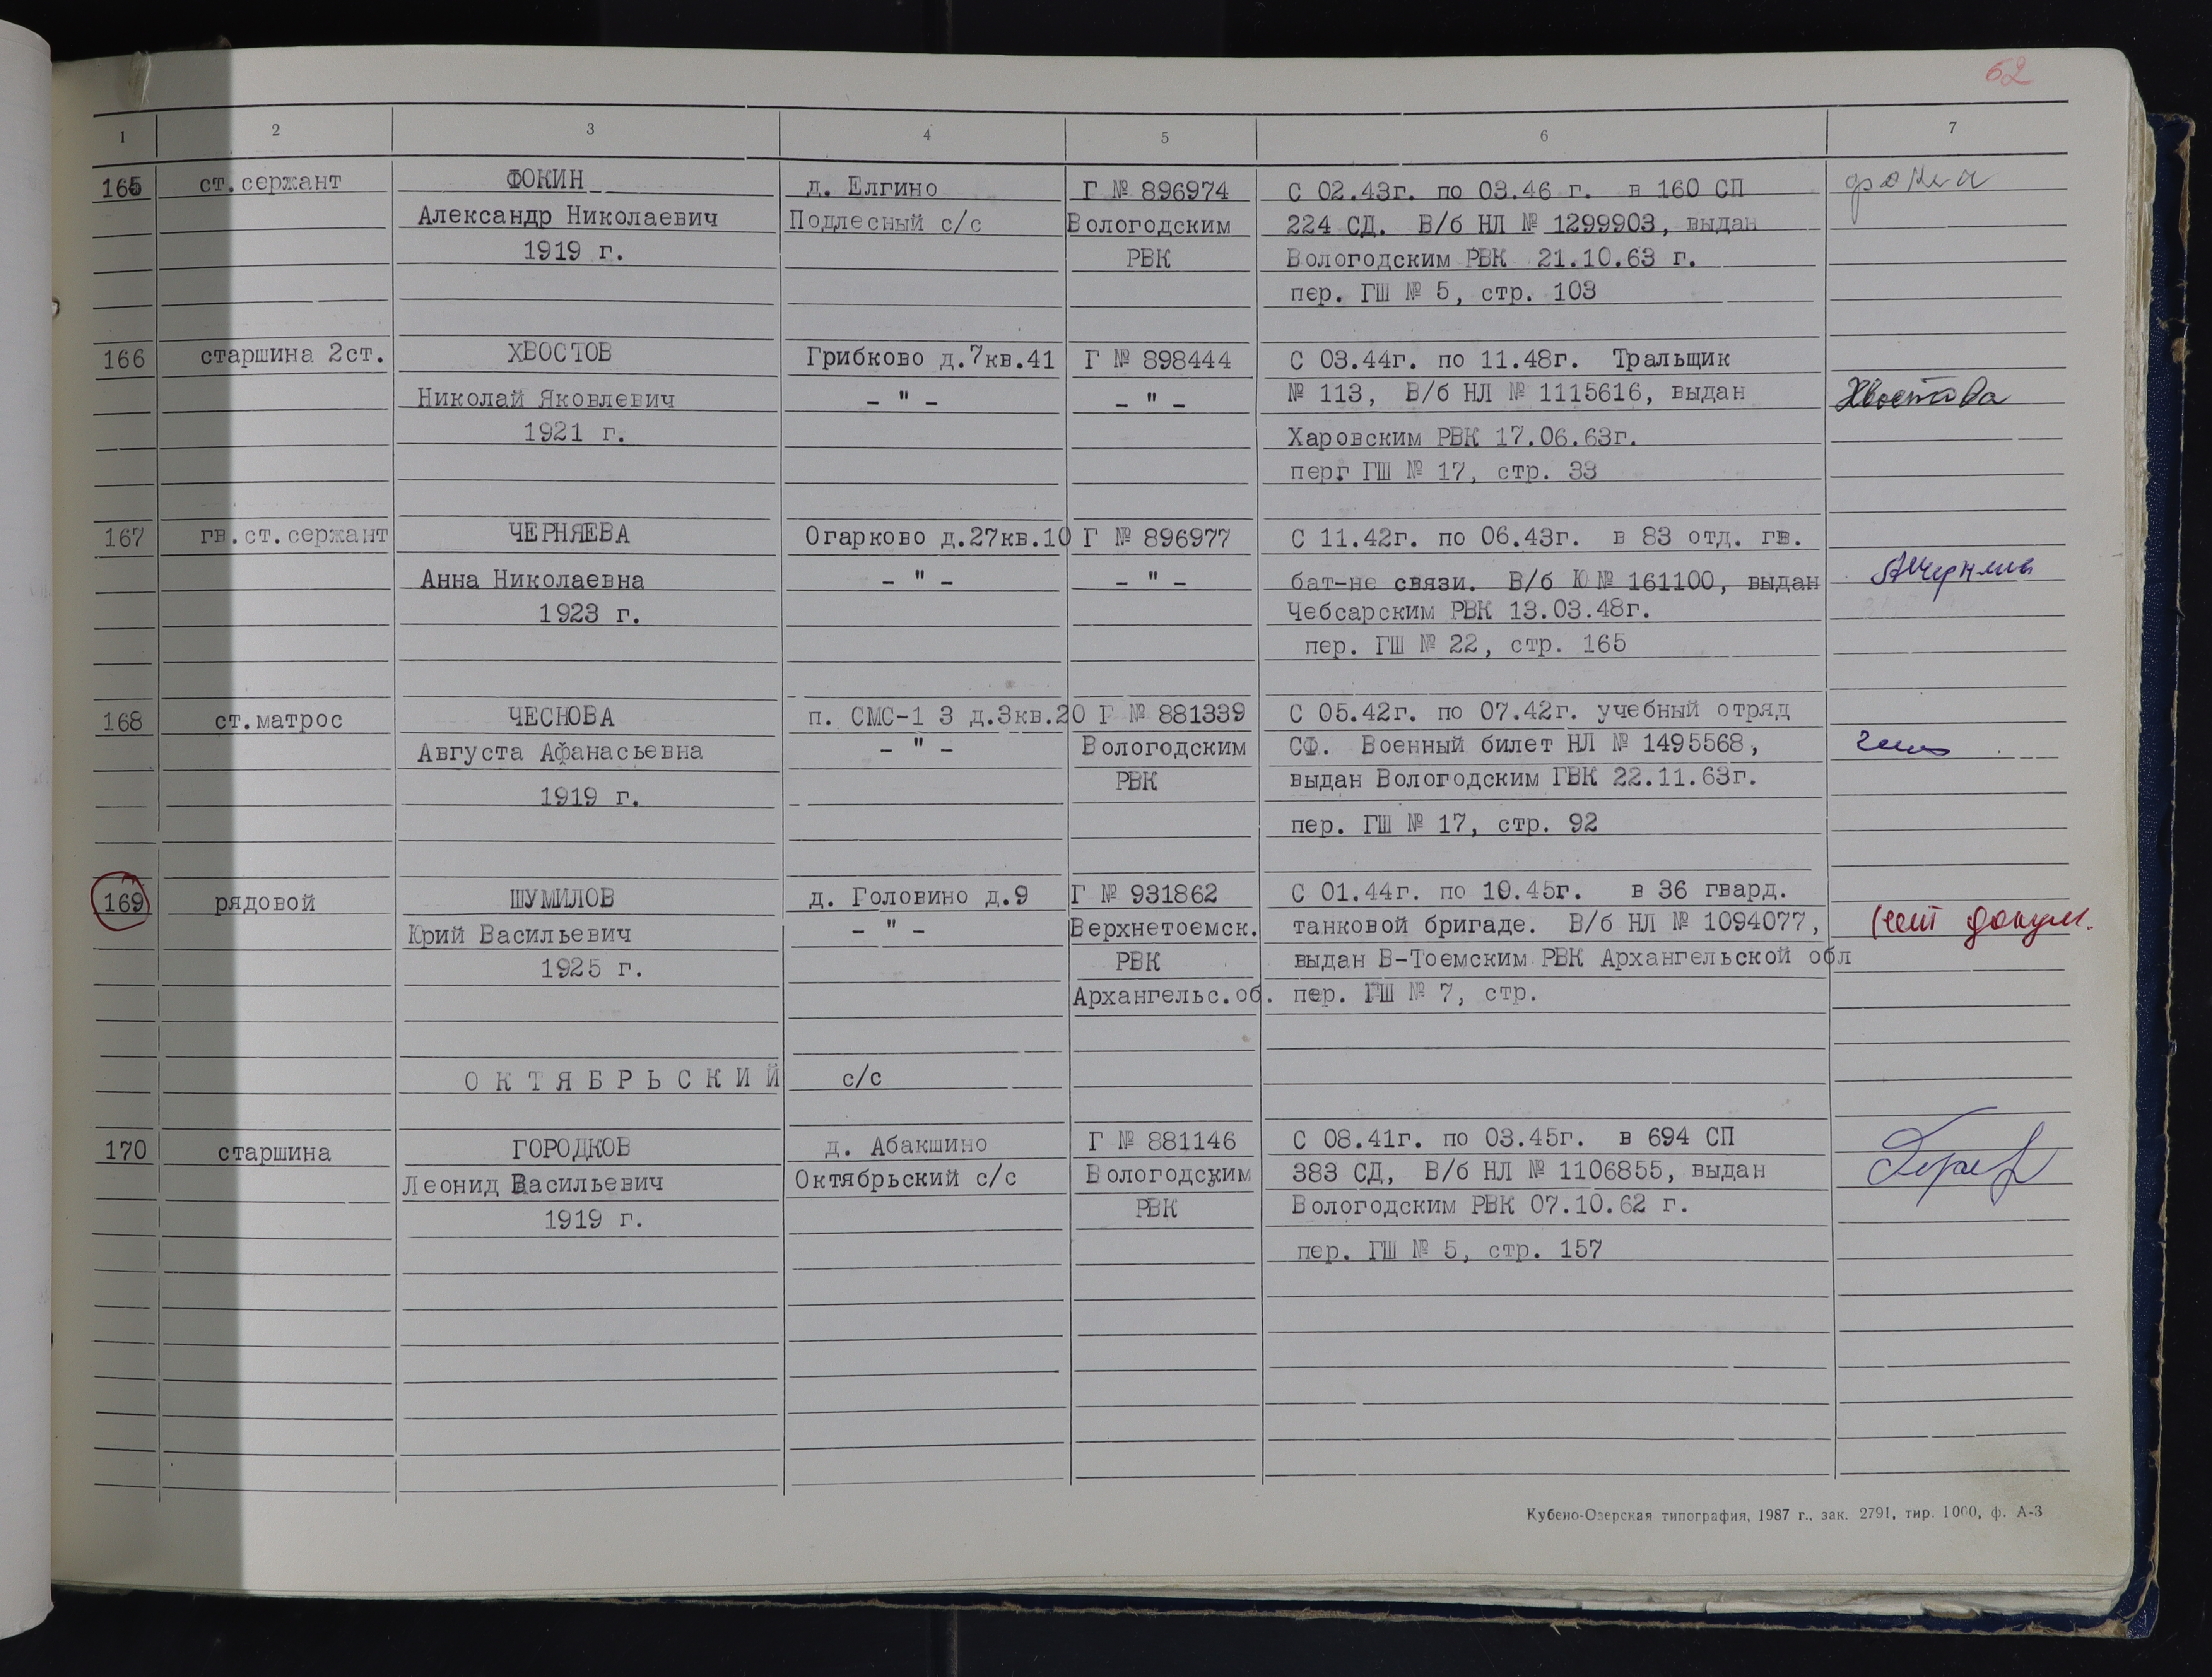 62
1 2 3 4 5 6 7
165 ст.сержант ФОКИН д. Елгино Г № 896974 С 02.43г. по 03.46 г. в 160 СП
Александр Николаевич Подлесный с/с Вологодским 224 СД. В/б НЛ № 1299903, выдан
1919 г. РВК Вологодским РВК 21.10.63 г.
пер. ГШ № 5, стр. 103
166 старшина 2ст. ХВОСТОВ Грибково д.7кв.41 Г № 898444 С 03.44г. по 11.48г. Тральщик
Николай Яковлевич – " – – " – № 113, В/б НЛ № 1115616, выдан Хвостова
1921 г. Харовским РВК 17.06.63г.
перг ГШ № 17, стр. 33
167 гв.ст.сержант ЧЕРНЯЕВА Огарково д.27кв.10 Г № 896977 С 11.42г. по 06.43г. в 83 отд. гв.
Анна Николаевна – " – – " – бат-не связи. В/б Ю № 161100, выдан
1923 г. Чебсарским РВК 13.03.48г.
пер. ГШ № 22, стр. 165
168 ст.матрос ЧЕСНОВА п. СМС-1 3 д.3кв.20 Г № 881339 С 05.42г. по 07.42г. учебный отряд
Августа Афанасьевна – " – Вологодским СФ. Военный билет НЛ № 1495568,
1919 г. РВК выдан Вологодским ГВК 22.11.63г.
пер. ГШ № 17, стр. 92
169 рядовой ШУМИЛОВ д. Головино д.9 Г № 931862 С 01.44г. по 10.45г. в 36 гвард.
Юрий Васильевич – " – Верхнетоемск. танковой бригаде. В/б НЛ № 1094077, нет докум.
1925 г. РВК выдан В-Тоемским РВК Архангельской обл
Архангельс.об. пер. ГШ № 7, стр.
ОКТЯБРЬСКИЙ с/с
170 старшина ГОРОДКОВ д. Абакшино Г № 881146 С 08.41г. по 03.45г. в 694 СП
Леонид Васильевич Октябрьский с/с Вологодским 383 СД, В/б НЛ № 1106855, выдан
1919 г. РВК Вологодским РВК 07.10.62 г.
пер. ГШ № 5, стр. 157
Кубено-Озерская типография, 1987 г., зак. 2791, тир. 1000, ф. А-3